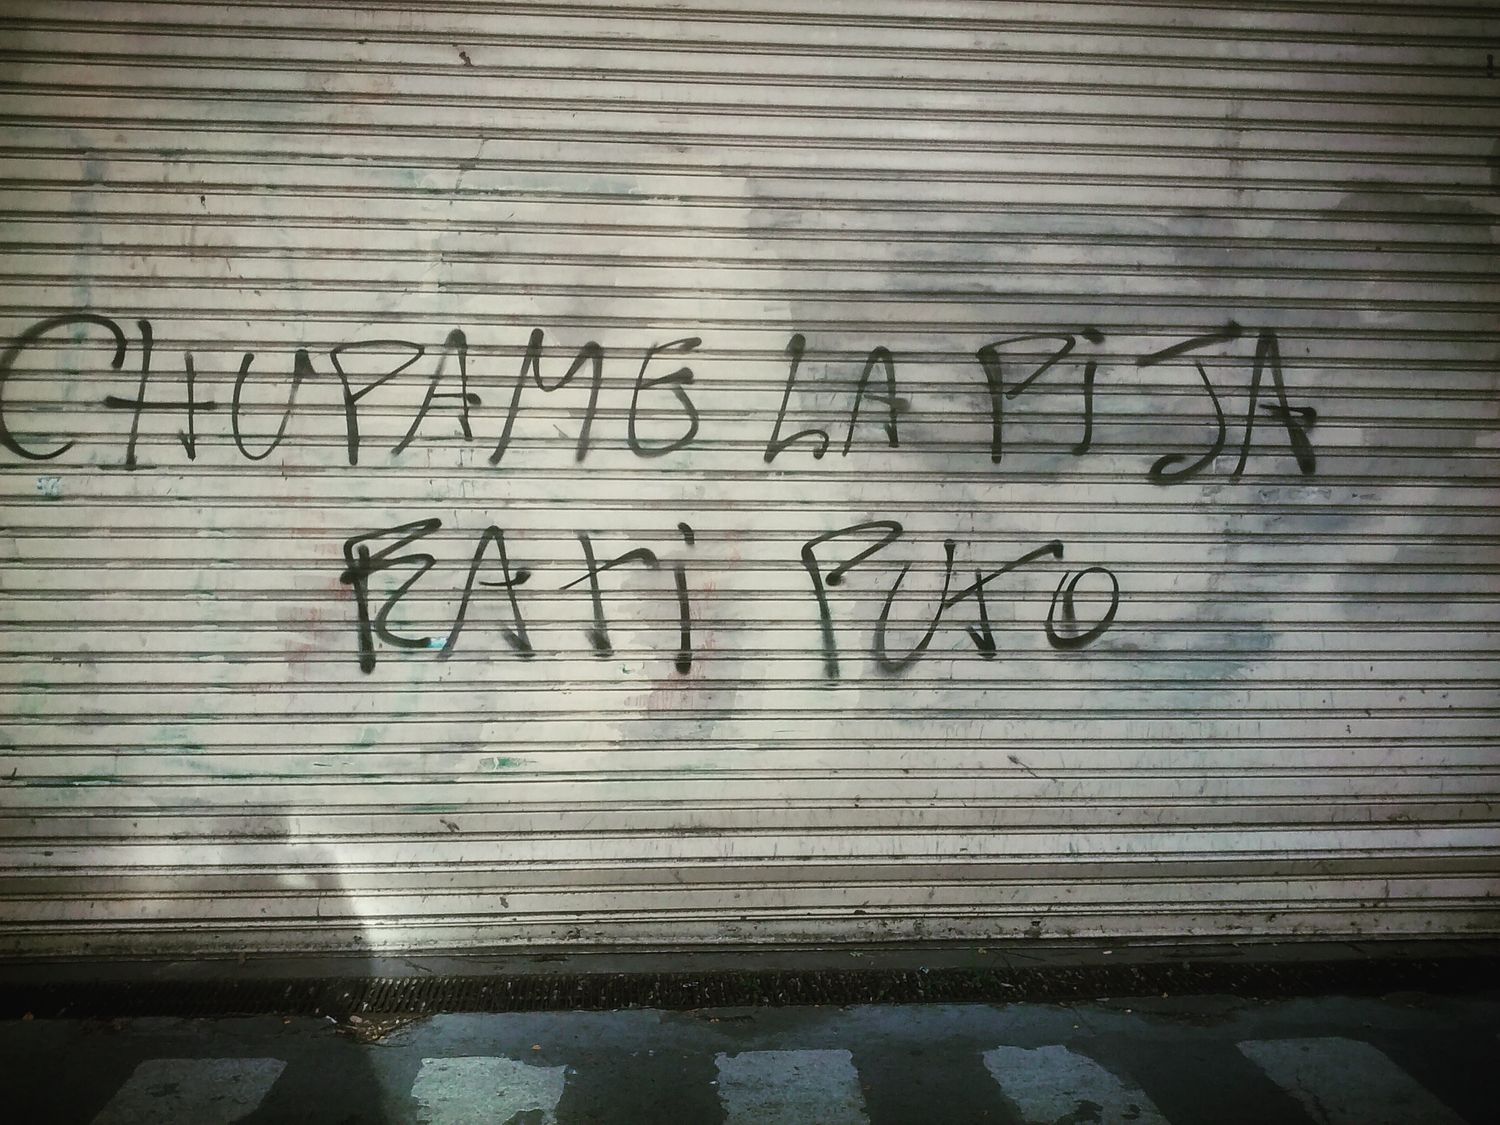 CHUPAME LA PiJA
RATi PUTO